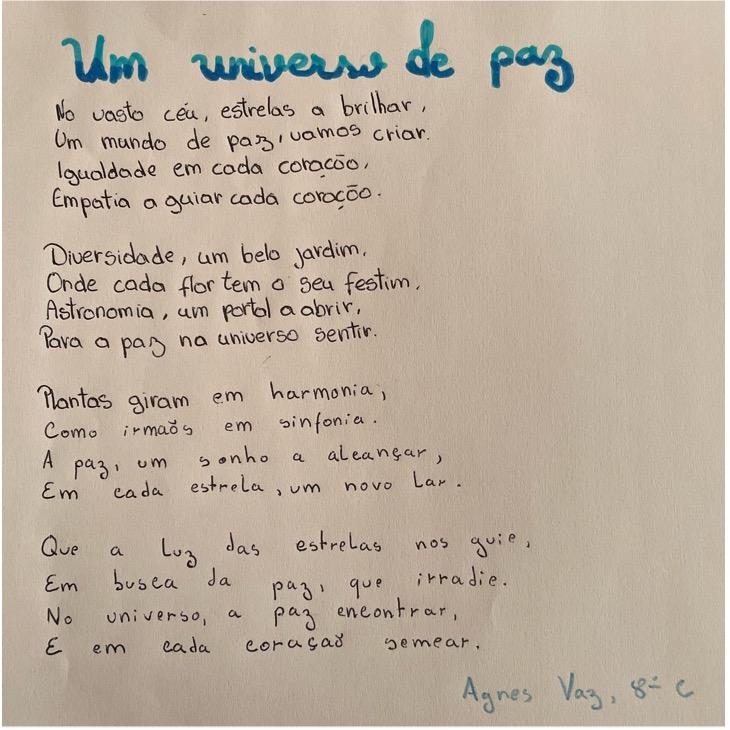 Um universo de paz
No vasto céu, estrelas a brilhar,
Um mundo de paz, vamos criar.
Igualdade em cada coração,
Empatia a guiar cada coração.
Diversidade, um belo jardim,
Onde cada flor tem o seu festim,
Astronomia, um portal a abrir,
Para a paz na universo sentir.
Plantas giram em harmonia,
Como irmãos em sinfonia.
A paz, um sonho a alcançar,
Em cada estrela, um novo Lar.
Que a Luz das estrelas nos guie,
Em busca da paz, que irradie.
No universo, a paz encontrar,
E em cada coração semear.
Agnes Vaz, 8º C